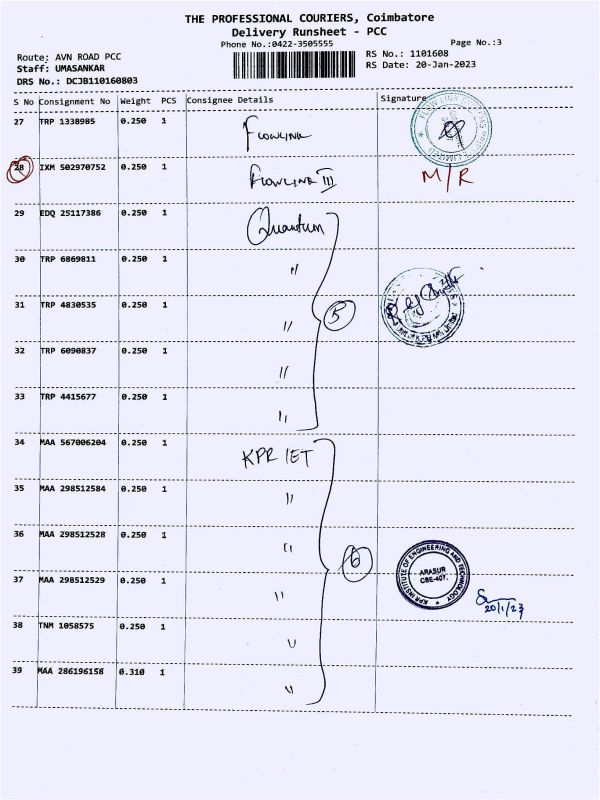 THE PROFESSIONAL COURIERS, Coimbatore
Delivery Runsheet - PCC
Phone No.:0422-3505555
Page No.:3
Route: AVN ROAD PCC
RS No.: 1101608
Staff: UMASANKAR
RS Date: 20-Jan-2023
DRS No.: DCJB110160803
S No Consignment No Weight PCS Consignee Details Signature
27 TRP 1338985 0.250 1 Flowlink
28 IXM 502970752 0.250 1 Flowlink III M/R
29 EDQ 25117386 0.250 1 Quantum
30 TRP 6869811 0.250 1 "
31 TRP 4830535 0.250 1 " 5
32 TRP 6090837 0.250 1 "
33 TRP 4415677 0.250 1 "
34 MAA 567006204 0.250 1 KPR IET
35 MAA 298512584 0.250 1 "
36 MAA 298512528 0.250 1 " 6
37 MAA 298512529 0.250 1 "
KPR INSTITUTE OF ENGINEERING AND TECHNOLOGY
ARASUR
CBE-407.
20/1/23
38 TNM 1058575 0.250 1 "
39 MAA 286196158 0.310 1 "